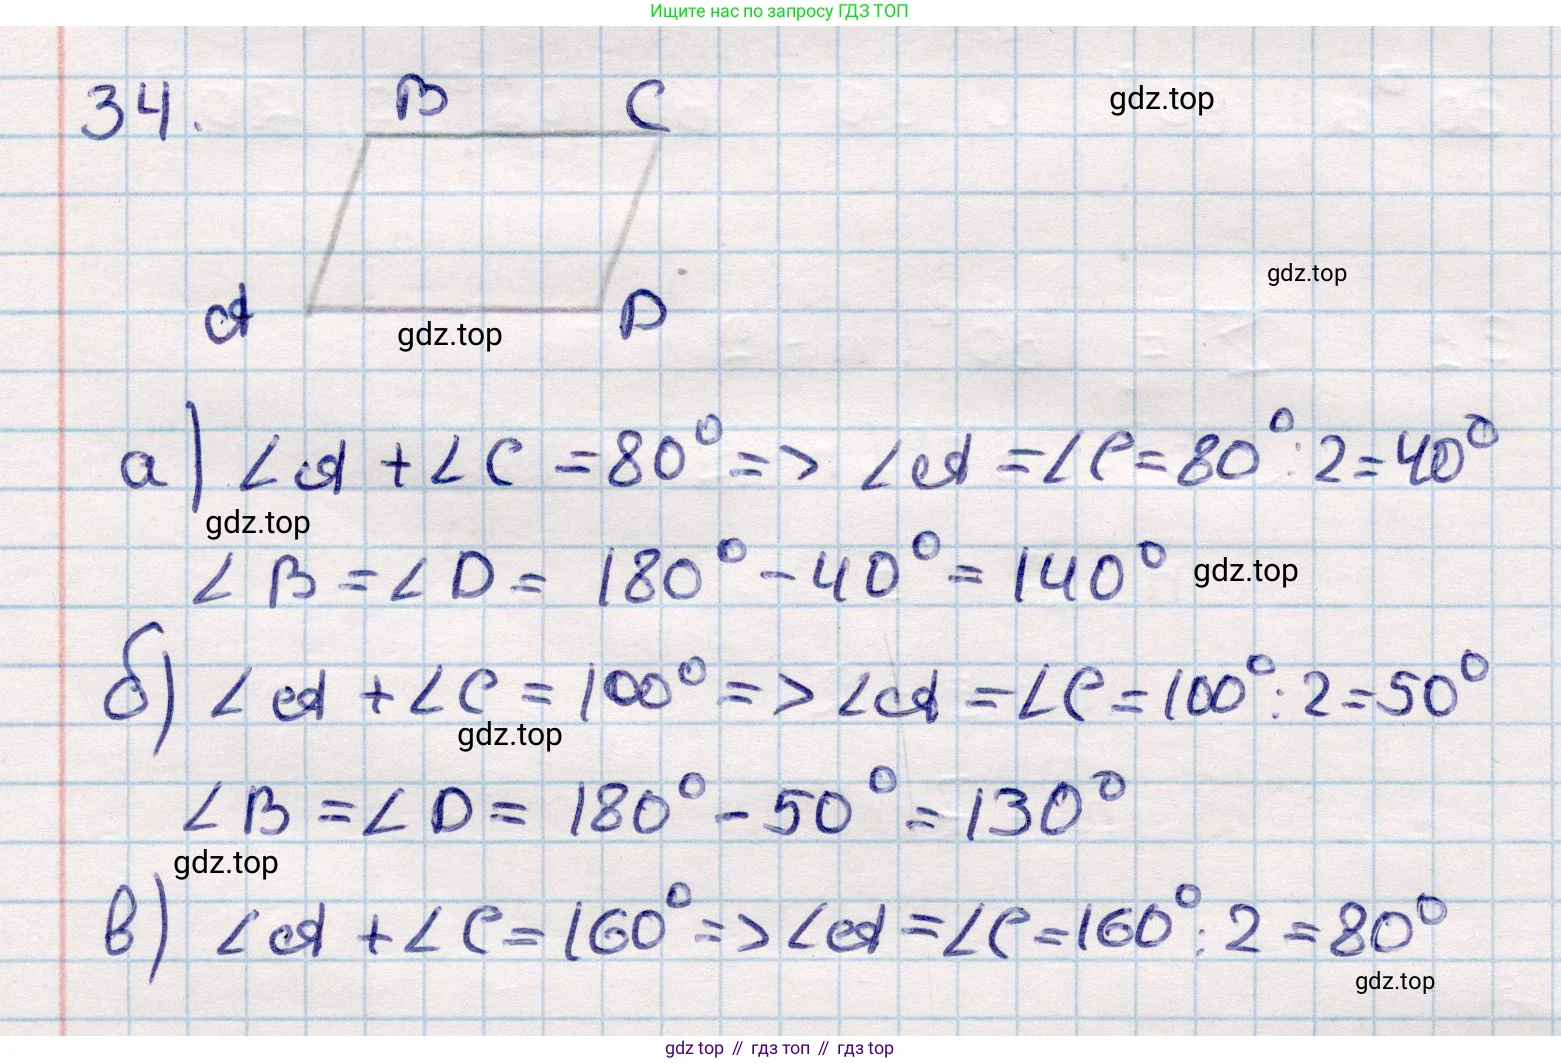 Ищите нас по запросу ГДЗ ТОП
34.
B C
gdz.top
gdz.top
A D
gdz.top
а) ∠A + ∠C = 80° => ∠A = ∠C = 80° : 2 = 40°
gdz.top
∠B = ∠D = 180° - 40° = 140°
gdz.top
б) ∠A + ∠C = 100° => ∠A = ∠C = 100° : 2 = 50°
gdz.top
∠B = ∠D = 180° - 50° = 130°
gdz.top
в) ∠A + ∠C = 160° => ∠A = ∠C = 160° : 2 = 80°
gdz.top
gdz top // гдз топ // гдз top